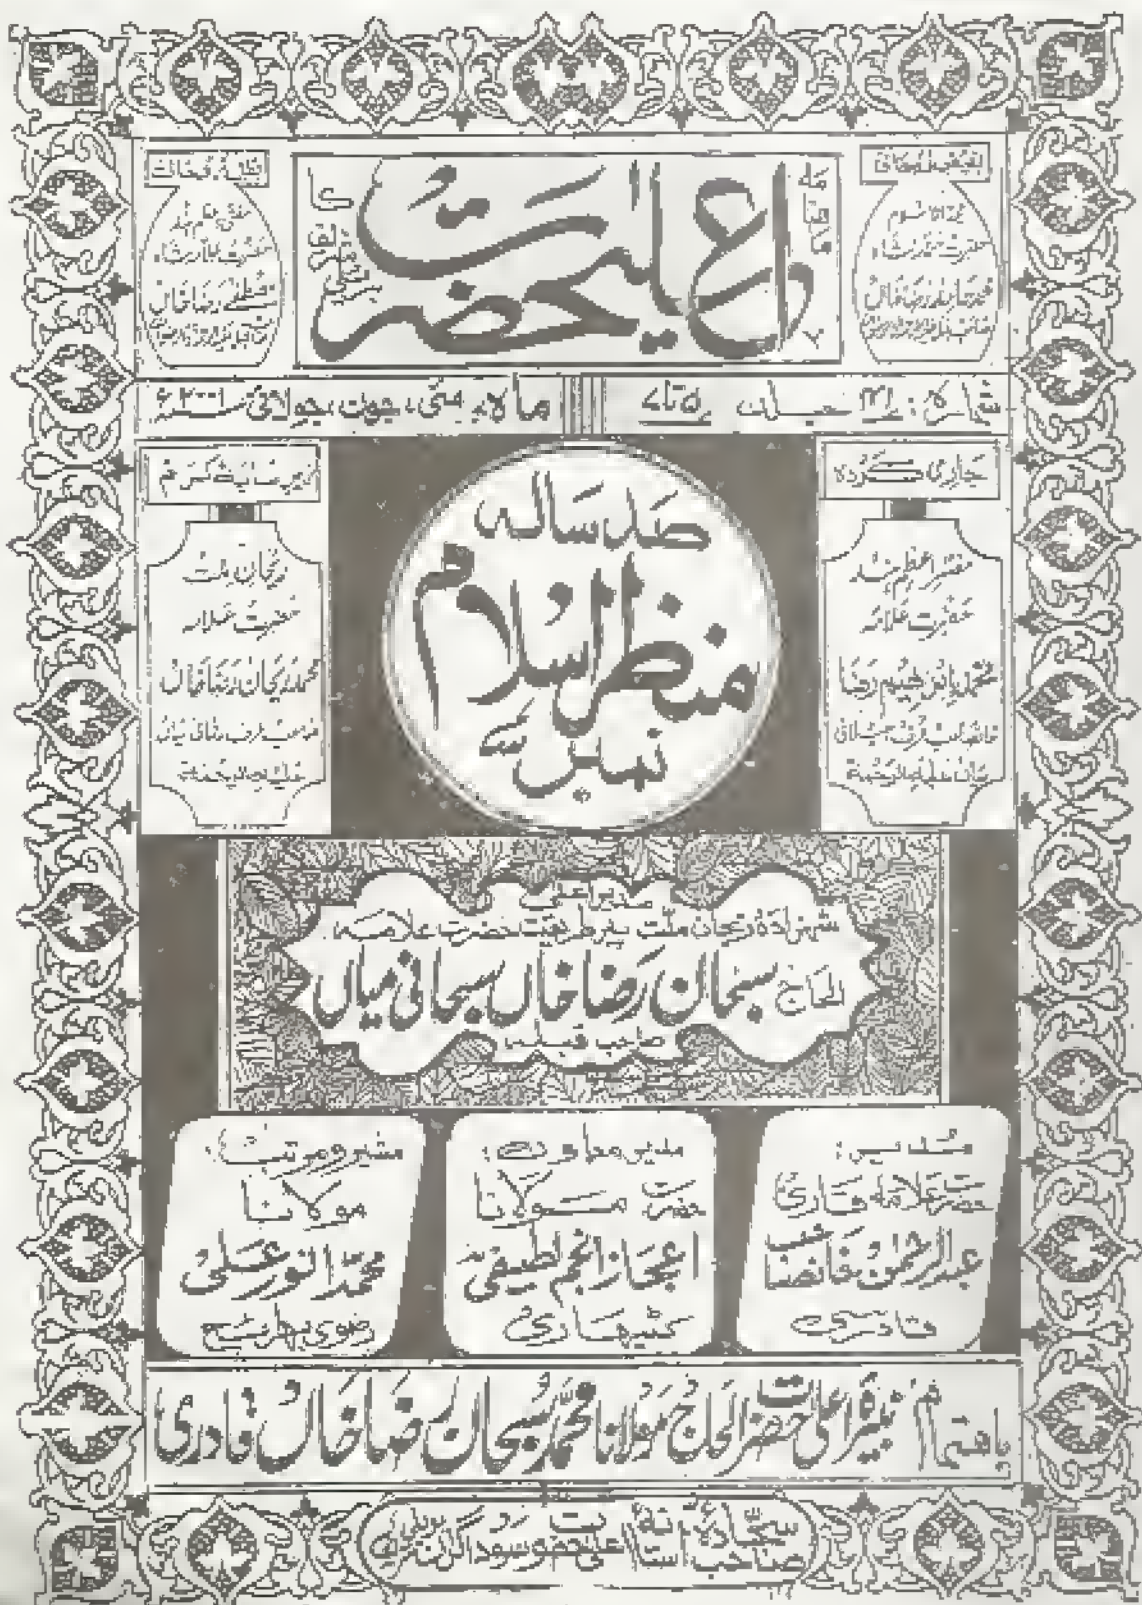 ماہنامہ اعلیحضرت کا
بفیض روحانی
حجۃ الاسلام
حضرت علامہ شاہ
محمد حامد رضا خاں
مفتی اعظم ہند
حضرت علامہ شاہ
مصطفےٰ رضا خاں
شمارہ: جلد ۴۱ ۵ تا ۷
ماہ: مئی، جون، جولائی ۲۰۰۱ء
جاری کردہ
مفسر اعظم ہند
حضرت علامہ
محمد ابراہیم رضا
خاں صاحب عرف جیلانی
میاں علیہ الرحمۃ
صد سالہ
منظر اسلام
نمبر
زیر سایۂ کرم
ریحان ملت
حضرت علامہ
محمد ریحان رضا خاں
صاحب عرف رحمانی میاں
علیہ الرحمۃ
مدیر اعلیٰ
شہزادۂ ریحان ملت پیر طریقت حضرت علامہ
الحاج سبحان رضا خاں سبحانی میاں
صاحب قبلہ
مدیر:
حضرت علامہ قاری
عبدالرحمٰن خانصاحب
قادری
مدیر معاون:
حضرت مولانا
اعجاز انجم لطیفی
کٹیہاری
مشیر و مرتب:
مولانا
محمد انور علی
رضوی بہرائچی
باہتمام نبیرۂ اعلیٰ حضرت الحاج مولانا محمد سبحان رضا خاں قادری
صاحب سجادہ آستانہ اعلیٰحضرت سوداگران بریلی